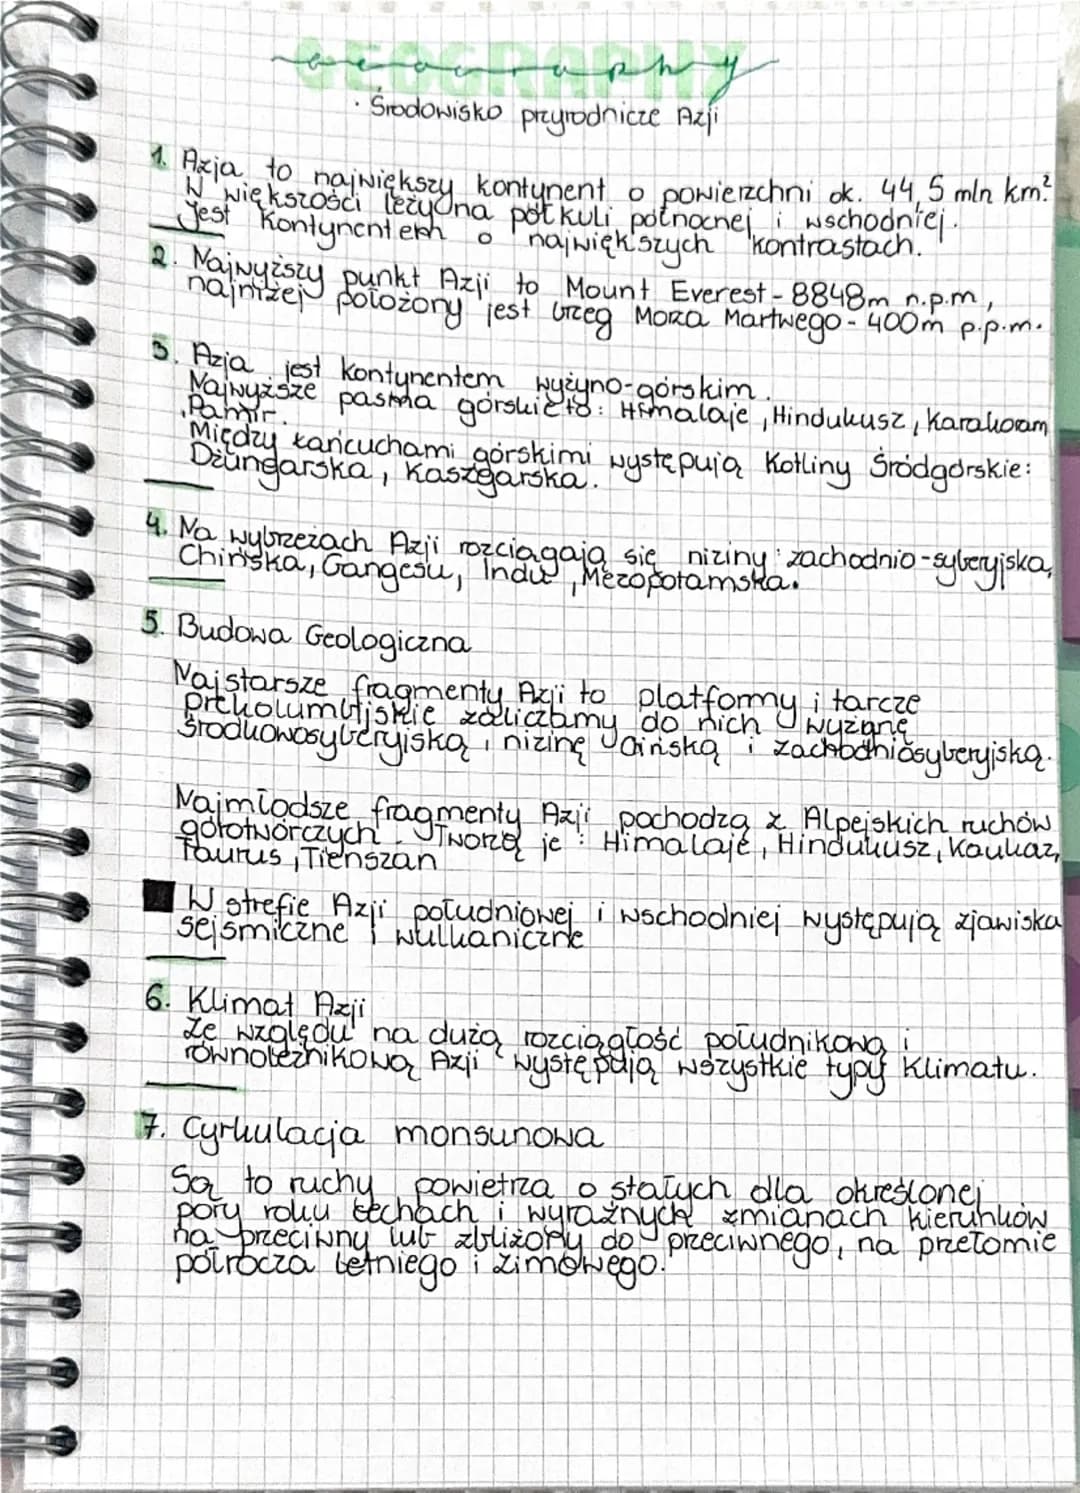 GEOGRAPHY
geography
· Środowisko przyrodnicze Azji
1. Azja to największy kontynent o powierzchni ok. 44,5 mln km².
W większości leży na półkuli północnej i wschodniej.
Jest kontynentem o największych kontrastach.
2. Najwyższy punkt Azji to Mount Everest - 8848m n.p.m,
najniżej położony jest brzeg Morza Martwego - 400m p.p.m.
3. Azja jest kontynentem wyżyno-górskim.
Najwyższe pasma górskie to: Himalaje, Hindukusz, Karakoram
, Pamir.
Między łańcuchami górskimi występują Kotliny Śródgórskie:
Dżungarska, Kaszgarska.
4. Na wybrzeżach Azji rozciągają się niziny: zachodnio-syberyjska,
Chińska, Gangesu, Indu, Mezopotamska.
5. Budowa Geologiczna
Najstarsze fragmenty Azji to platformy i tarcze
zaliczamy do nich wyżynę
środkowosyberyjską, nizinę i zachodniosyberyjską.
Najmłodsze fragmenty Azji pochodzą z Alpejskich ruchów
górotwórczych. Tworzą je: Himalaje, Hindukusz, Kaukaz,
Taurus, Tienszan
W strefie Azji południowej i wschodniej występują zjawiska
sejsmiczne i wulkaniczne
6. Klimat Azji
Ze względu na dużą rozciągłość południkową i
równoleżnikową Azji występują wszystkie typy Klimatu.
7. Cyrkulacja monsunowa
Są to ruchy powietrza o stałych dla określonej
pory roku cechach i wyraźnych zmianach kierunków
na przeciwny lub zbliżony do przeciwnego, na przełomie
półrocza letniego i zimowego.